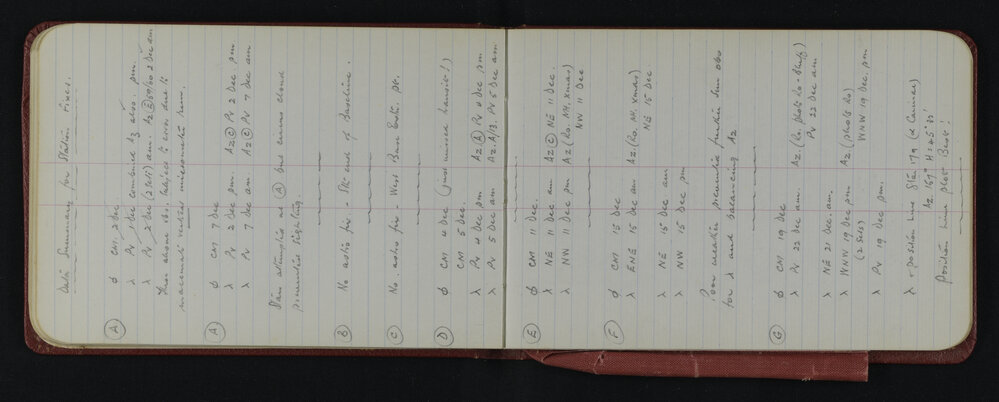 Data Summary for Station Fixes.
(A) ϕ CM, 2 Dec
λ PV, 1 Dec combine Az also. pm.
λ PV 2 Dec (2 sets) am. Az (E) 59/60 2 Dec am
These above obs. subject to error due to
micrometer run.
(A) ϕ CM 7 Dec
λ PV 2 Dec pm. Az (C) PV 2 Dec pm
λ PV 7 Dec am Az (C) PV 7 Dec am
attempted at (A) but cirrus cloud
prevented sighting
(B) No astro fix - Sth end of Baseline.
(C) No. astro fix - West Base Extn. pt.
(D) ϕ CM 4 Dec (just missed transit!)
CM 5 Dec.
λ PV 4 Dec pm Az (A) PV 4 Dec pm
λ PV 5 Dec am Az. A/B, PV 5 Dec am
(E) ϕ CM 11 Dec.
λ NE 11 Dec am Az (C) NE 11 Dec.
λ NW 11 Dec pm Az (Ro. Mt. Xmas)
NW 11 Dec
(F) ϕ CM 15 Dec
λ ENE 15 Dec am Az. (Ro. Mt. Xmas)
NE 15 Dec
λ NE 15 Dec am
λ NW 15 Dec pm
Poor weather prevented further Sun obs
for λ and balancing Az
(G) ϕ CM 19 Dec
λ PV 22 Dec am. Az. (Ro. photo Ro - Bluff)
PV 22 Dec am
λ NE 21 Dec am.
λ WNW 19 Dec pm Az (photo Ro)
(2 sets) WNW 19 Dec. pm
λ PV 19 Dec pm.
λ + position line Star 179 (α Carinae)
Az. 167° H = 45° 30'
Position Line plot Best!